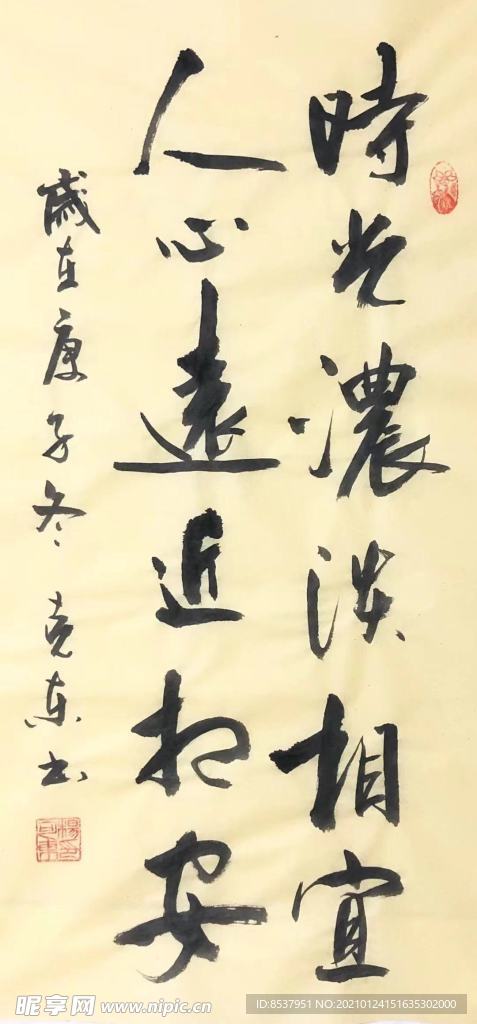 時光濃淡相宜
人心遠近相安
歲在庚子冬 克東书
昵享网 www.nipic.cn
ID:8537951 NO:20210124151635302000